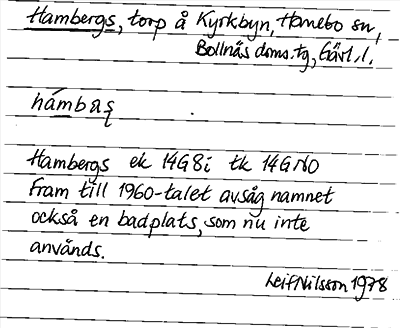 Hambergs, torp å Kyrkbyn, Hanebo sn,
Bollnäs doms.tg, Gävl.l.
hámbaɋ
Hambergs ek 14G8i tk 14GNO
Fram till 1960-talet avsåg namnet
också en badplats, som nu inte
används.
Leif Nilsson 1978